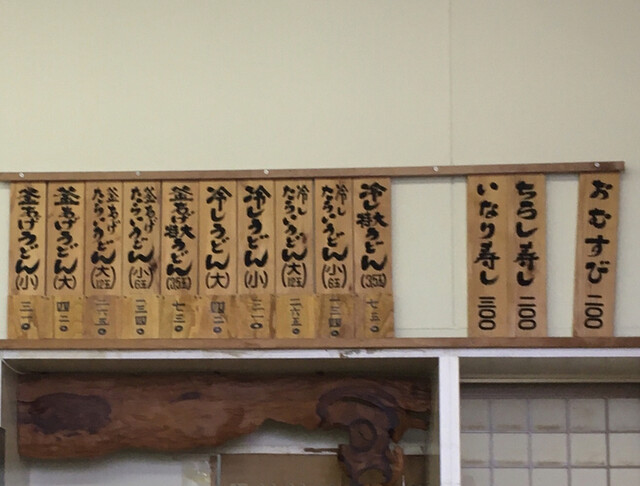 おむすび 二〇〇
ちらし寿し 二〇〇
いなり寿し 三〇〇
冷し特大うどん(3.5玉) 七三〇
冷したらいうどん(小6玉) 一三四〇
冷したらいうどん(大12玉) 二六五〇
冷しうどん(小) 三一〇
冷しうどん(大) 四二〇
釜あげ特大うどん(3.5玉) 七三〇
釜あげたらいうどん(小6玉) 一三四〇
釜あげたらいうどん(大12玉) 二六五〇
釜あげうどん(大) 四二〇
釜あげうどん(小) 三一〇